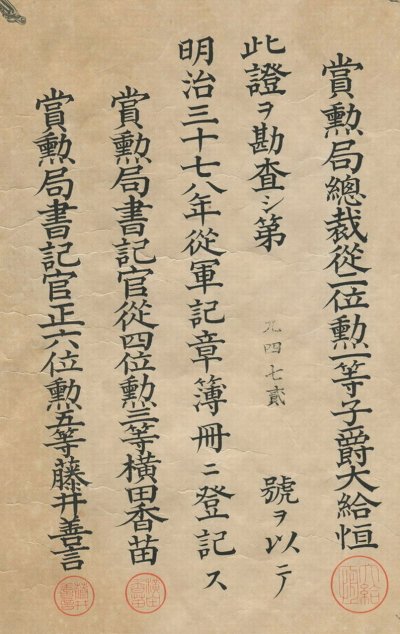 賞勲局總裁從二位勲一等子爵大給恒
此證ヲ勘査シ第九四七貳號ヲ以テ
明治三十七八年從軍記章簿冊ニ登記ス
賞勲局書記官從四位勲三等橫田香苗
賞勲局書記官正六位勲五等藤井善言